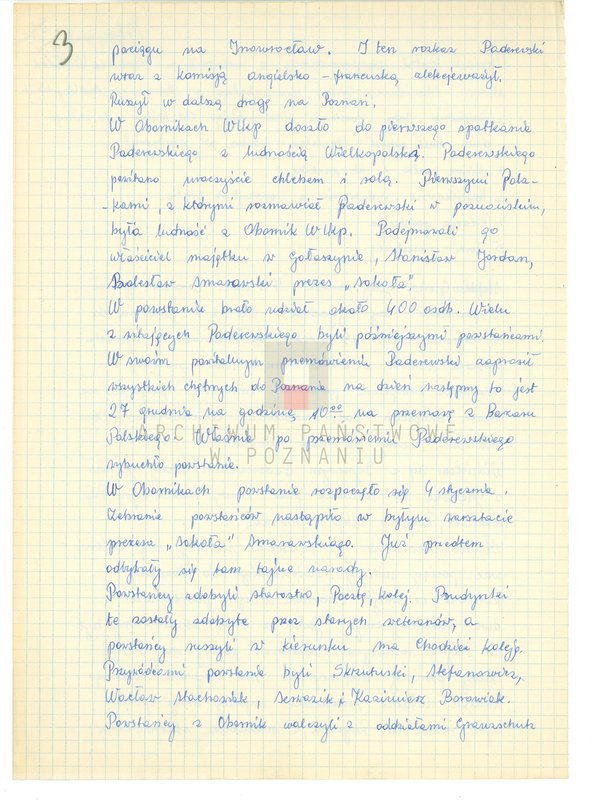 3
pociągu na Inowrocław. I ten rozkaz Paderewski
wraz z komisją angielsko-francuską zlekceważył.
Ruszył w dalszą drogę na Poznań.
W Obornikach Wlkp doszło do pierwszego spotkania
Paderewskiego z ludnością Wielkopolską. Paderewskiego
powitano uroczyście chlebem i solą. Pierwszymi Pola-
-kami, z którymi rozmawiał Paderewski w poznańskim,
była ludność z Obornik Wlkp. Podejmowali go
właściciel majątku w Gołaszynie, Stanisław Jordan,
Bolesław Smarowski prezes „Sokoła".
W powstaniu brało udział około 400 osób. Wielu
z witających Paderewskiego byli późniejszymi powstańcami.
W swoim powitalnym przemówieniu Paderewski zaprosił
wszystkich chętnych do Poznania na dzień następny to jest
27 grudnia na godzinę 10⁰⁰ na przemarsz z Bazaru
Polskiego. Właśnie po przemówieniu Paderewskiego
wybuchło powstanie.
ARCHIWUM PAŃSTWOWE
W POZNANIU
W Obornikach powstanie rozpoczęło się 4 stycznia.
Zebranie powstańców nastąpiło w byłym warsztacie
prezesa „Sokoła" Smarowskiego. Już przedtem
odbywały się tam tajne narady.
Powstańcy zdobyli starostwo, Pocztę, kolej. Budynki
te zostały zdobyte przez starszych weteranów, a
powstańcy ruszyli w kierunku na Chodzież koleją.
Przywódcami powstania byli Skrzetuski, Stefanowicz,
Wacław Stachowiak, i Kazimierz Borowiak.
Powstańcy z Obornik walczyli z oddziałami Grenzschutz